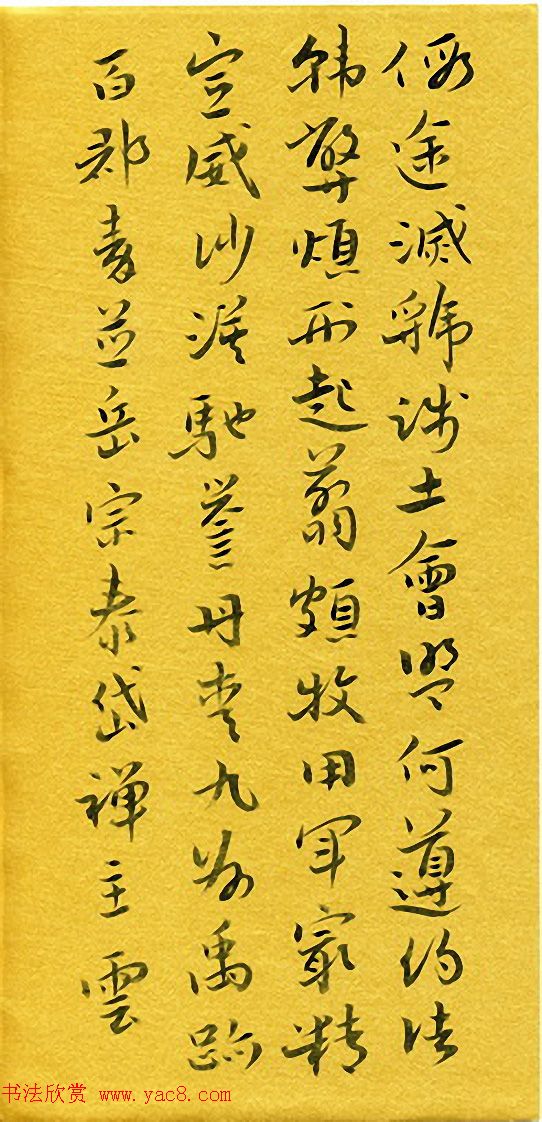 假途滅虢踐土會盟何遵約法
韓弊煩刑起翦頗牧用軍最精
宣威沙漠馳譽丹青九州禹跡
百郡秦並岳宗泰岱禪主雲
书法欣赏 www.yac8.com